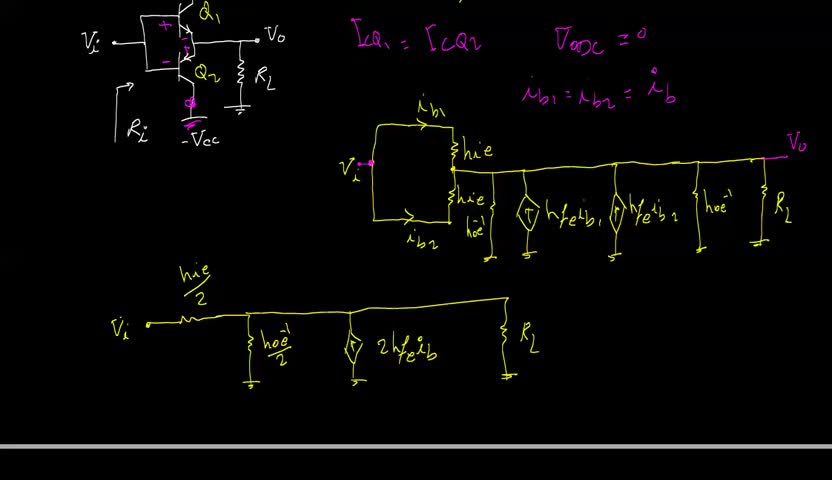 Q1
Vi
Vo
Q2
RL
Ri
-Vcc
ICQ1 = ICQ2
= 0
ib1 = ib2 = ib
ib1
hie
Vi
Vo
hie
hoe⁻¹
hfe ib1
hfe ib2
hoe⁻¹
RL
ib2
hie/2
Vi
hoe⁻¹/2
2hfe ib
RL